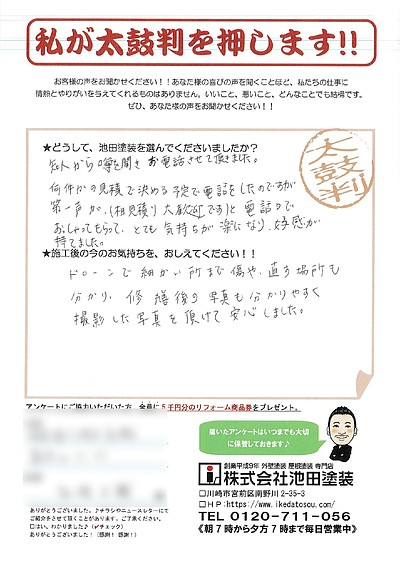 私が太鼓判を押します!!
お客様の声をお聞かせください！！あなた様の喜びの声を聞くことほど、私たちの仕事に
情熱とやりがいを与えてくれるものはありません。いいこと、悪いこと、どんなことでも結構です。
ぜひ、あなた様の声をお聞かせください！！
太鼓判
★どうして、池田塗装を選んでくださいましたか？
知人から噂を聞き お電話させて頂きました。
何件かの見積で決める予定で電話をしたのですが
第一声が、(相見積り大歓迎です)と電話口で
おしゃってもらって、とても気持ちが楽になり、好感が
持てました。
★施工後の今のお気持ちを、おしえてください！！
ドローンで細かい所まで傷や、直す場所も
分かり、修繕後の写真も分かりやすく
撮影した写真を頂けて安心しました。
アンケートにご協力いただいた方、全員に５千円分のリフォーム商品券をプレゼント。
届いたアンケートはいつまでも大切
に保管しておきます♪
創業平成9年 外壁塗装 屋根塗装 専門店
株式会社池田塗装
□川崎市宮前区南野川2-35-3
□HP:https://www.ikedatosou.com/
TEL 0120-711-056
《朝７時から夕方７時まで毎日営業中》
ありがとうございました。♪チラシやニュースレターにて
ご紹介をさせて頂くことがあります。ご了承ください。
□はい。わかりました♪(✔チェック)
ありがとうございました！（感謝！感謝！）